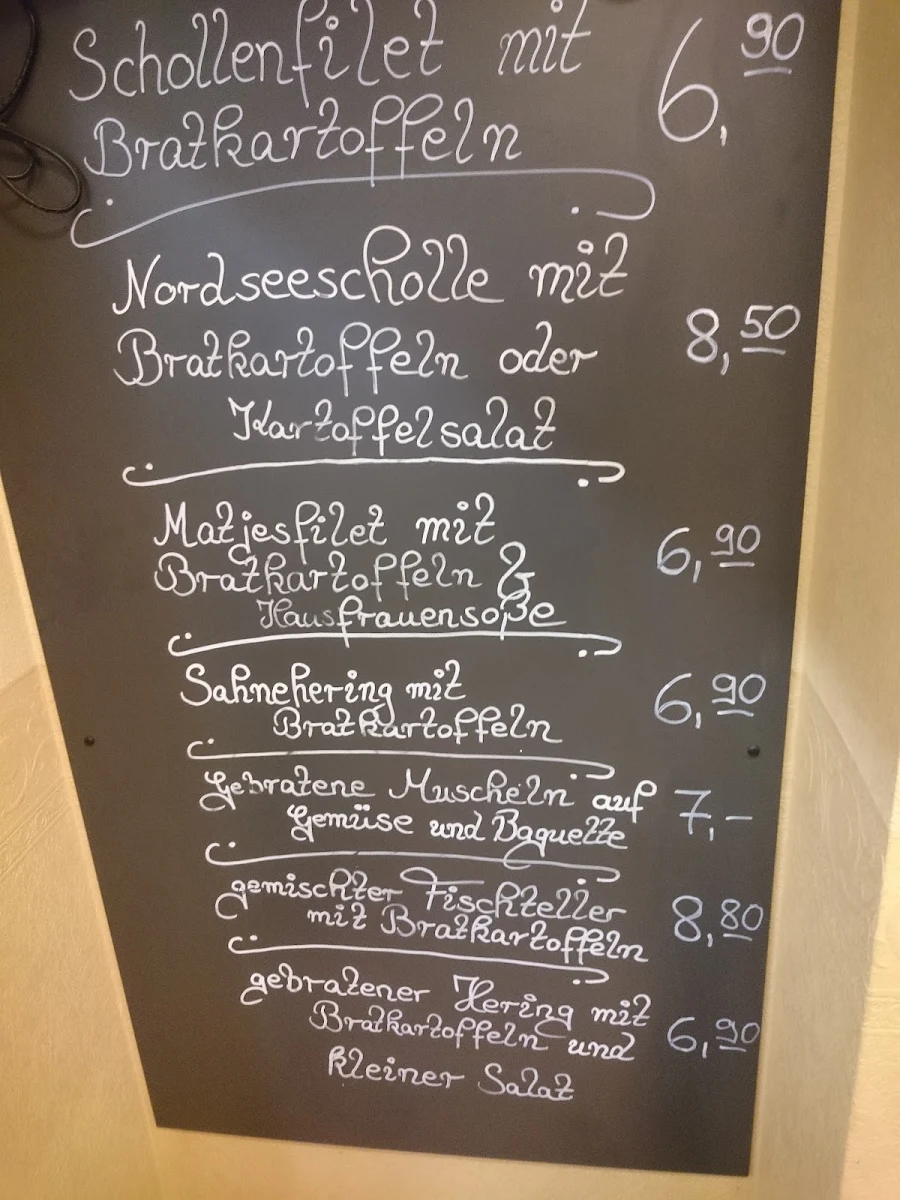 Schollenfilet mit 6,90
Bratkartoffeln
Nordseescholle mit
Bratkartoffeln oder 8,50
Kartoffelsalat
Matjesfilet mit
Bratkartoffeln & 6,90
Hausfrauensoße
Sahnehering mit 6,90
Bratkartoffeln
Gebratene Muscheln auf 7,-
Gemüse und Baguette
gemischter Fischteller 8,80
mit Bratkartoffeln
gebratener Hering mit
Bratkartoffeln und 6,90
kleiner Salat